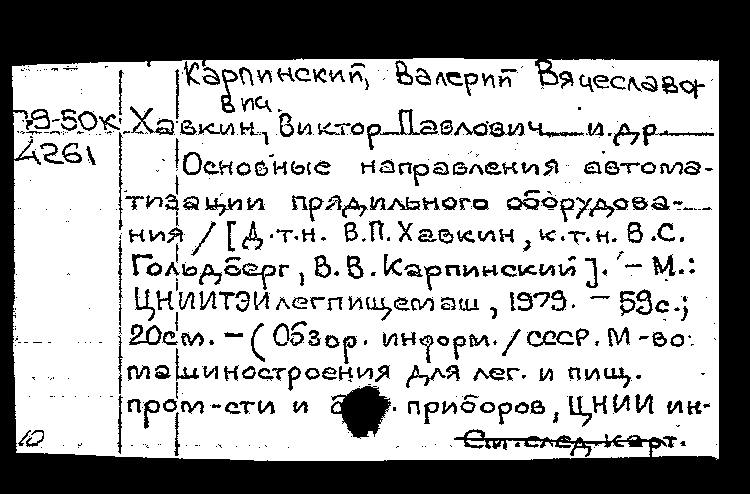 Карпинский, Валерий Вячеславо
вич.
79-50к Хавкин, Виктор Павлович и др
4261 Основные направления автома-
тизации прядильного оборудова-
ния / [Д.т.н. В.П. Хавкин, к.т.н. В.С.
Гольдберг, В.В. Карпинский]. - М.:
ЦНИИТЭИлегпищемаш, 1979. - 59с.;
20см. - (Обзор. информ. / СССР. М-во
машиностроения для лег. и пищ.
пром-сти и приборов, ЦНИИ ин-
10 См. след. карт.